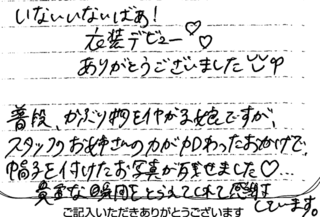 いないいないばぁ!
衣装デビュー♡♡
ありがとうございました
普段、かぶり物をイヤがる娘ですが、
スタッフのお姉さんの力が加わったおかげで、
帽子を付けたお写真が写せました♡…
貴重な瞬間をとらえてくれて感謝
しています。
ご記入いただきありがとうございます